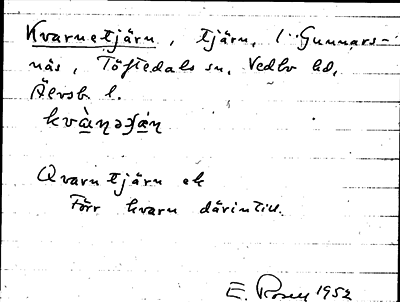 Kvarnetjärn, tjärn, i Gunnars-
näs, Töftedals sn, Vedbo hd,
Älvsb l.
kvànəɟän
Qvarntjärn ek
Förr kvarn därintill.
E. Rosell 1952